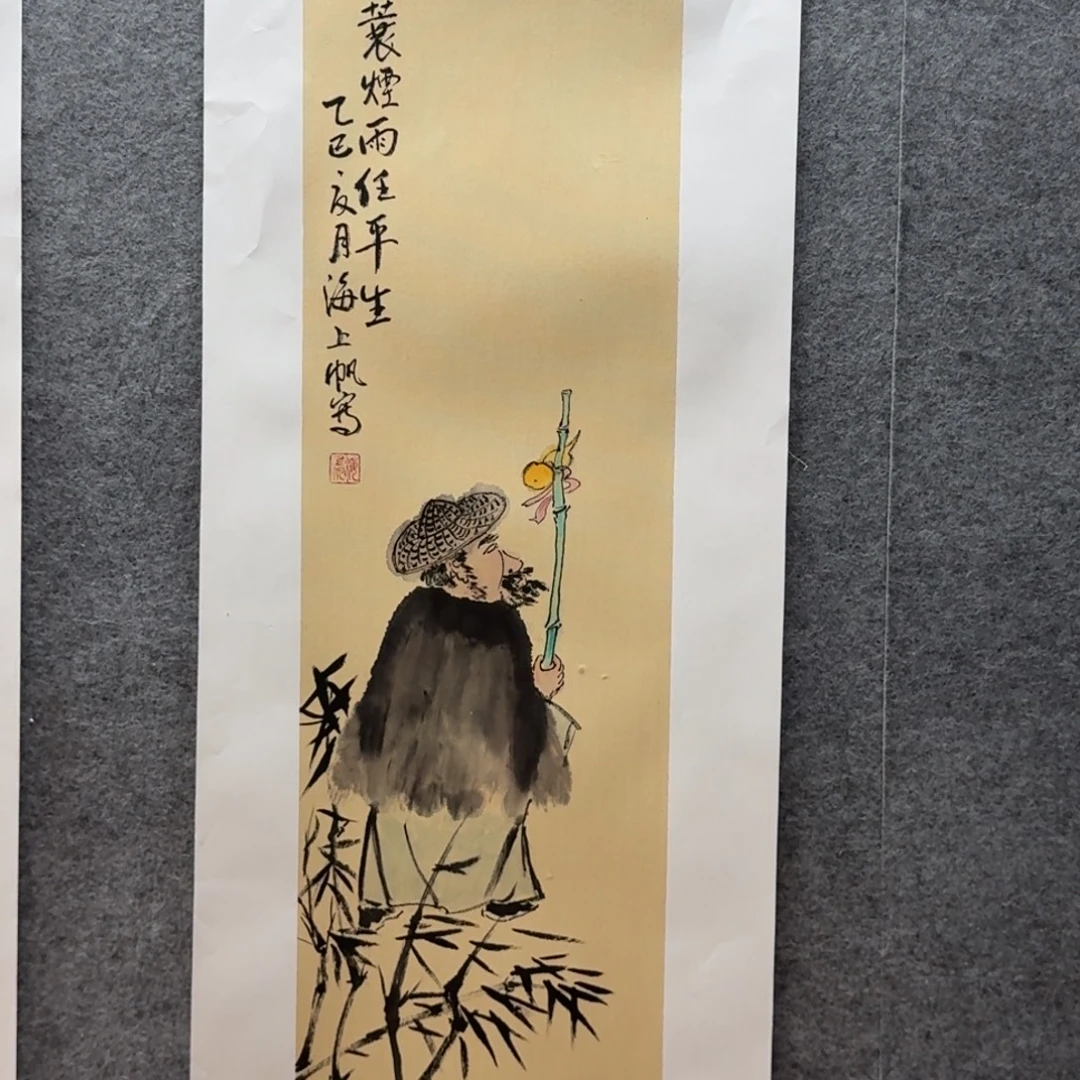 蓑煙雨任平生
乙巳之夏月海上帆寫